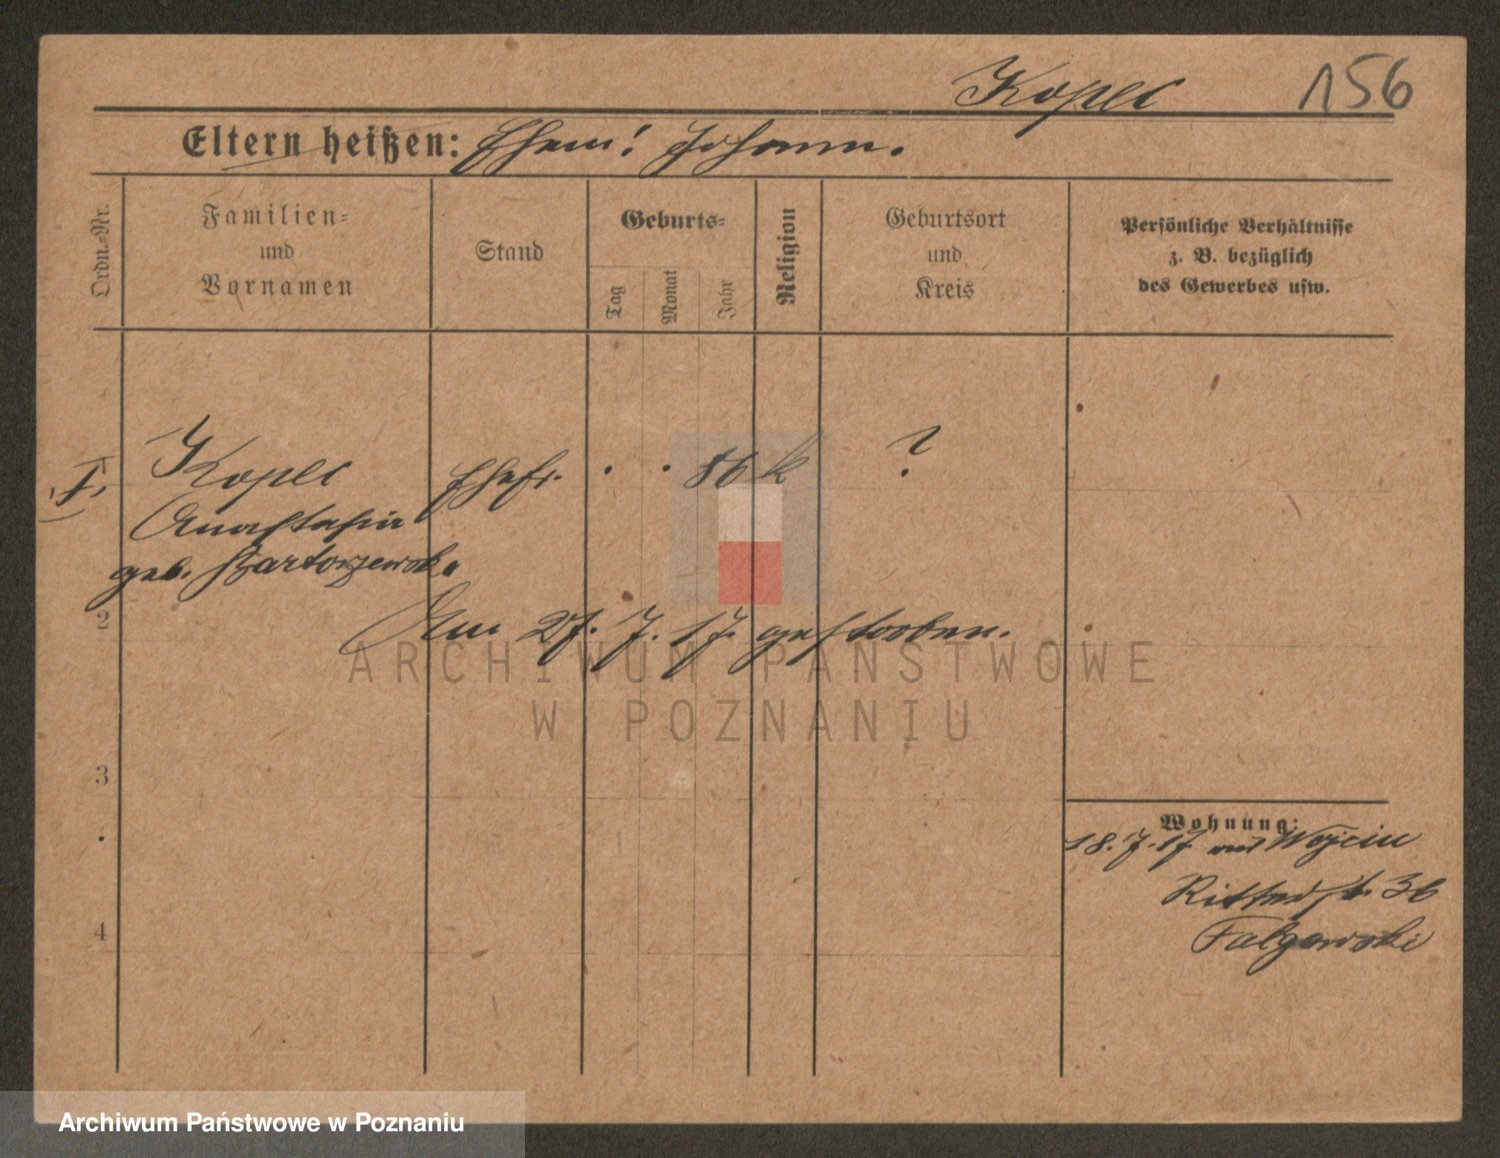 Kopec 156
Eltern heißen: Ehem: Johann.
Ordn.=Nr.
Familien=
und
Vornamen
Stand
Geburts=
Tag
Monat
Jahr
Religion
Geburtsort
und
Kreis
Persönliche Verhältnisse
z. B. bezüglich
des Gewerbes usw.
1. Kopec Ehefr. . . 86 k ?
Anastasia
geb.
2
Am 27. 7. 17 gestorben.
3
4
Wohnung:
18. 7. 17 aus Wojcin
Ritterstr. 36
ARCHIWUM PAŃSTWOWE
W POZNANIU
Archiwum Państwowe w Poznaniu